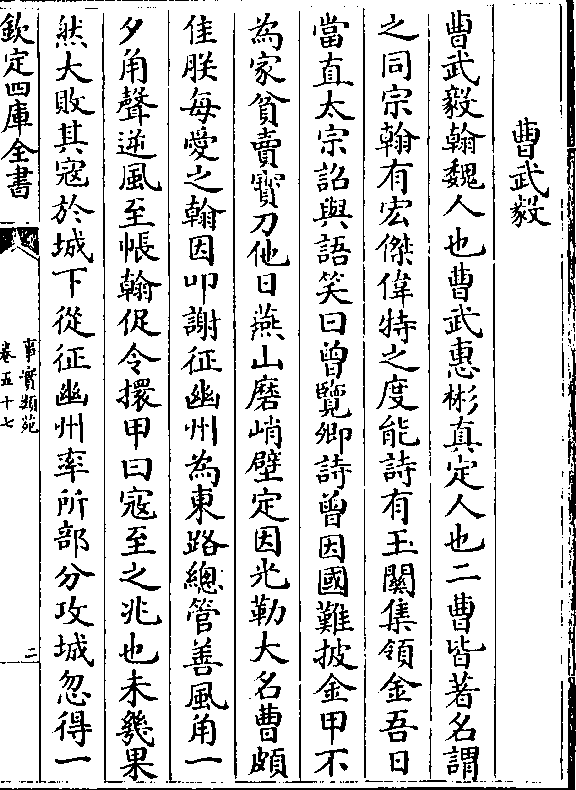 曹武毅
曹武毅翰魏人也曹武惠彬真定人也二曹皆著名謂
之同宗翰有宏傑偉特之度能詩有玉關集領金吾日
當直太宗詔與語笑曰曾覽卿詩曾因國難披金甲不
為家貧賣寳刀他日燕山磨峭壁定因光勒大名曹頗
佳朕每愛之翰因叩謝征幽州為東路總管善風角一
夕角聲逆風至帳翰促令擐甲曰寇至之兆也未幾果
然大敗其寇於城下從征幽州率所部分攻城忽得一
欽定四庫全書
事實類苑
卷五十七
二